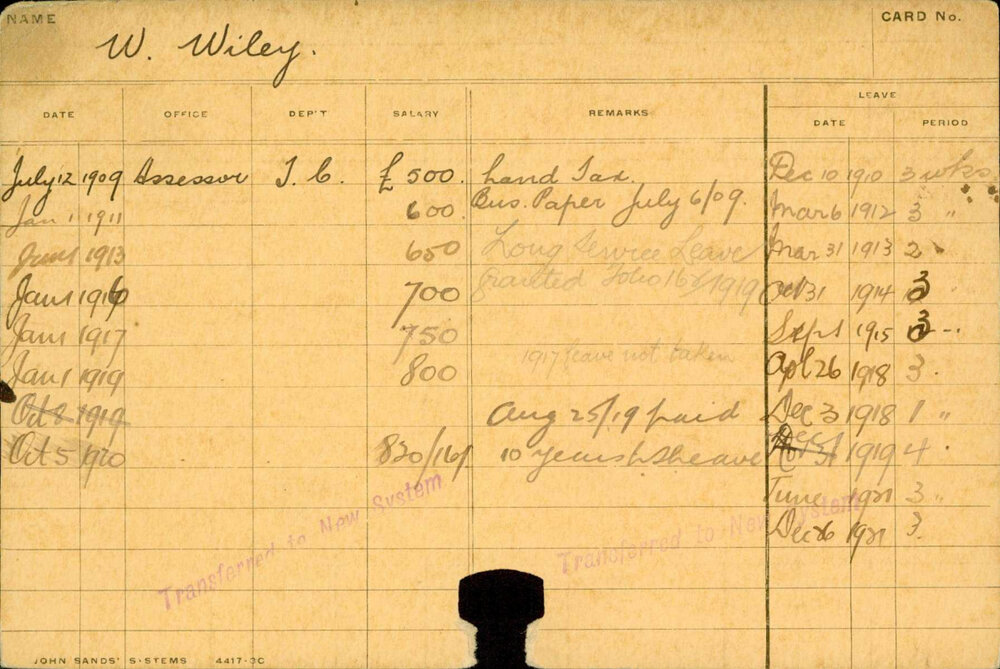 NAME
CARD No.
W. Wiley.
LEAVE
DATE OFFICE DEP'T SALARY REMARKS DATE PERIOD
July 12 1909 Assessor T. C. £ 500. Land Tax. Dec 10 1910 3 wks
Jan 1 1911 600. Bus. Paper July 6/09. Mar 6 1912 3 "
1913 650 Long Service Leave Mar 31 1913 2
Jan 1 1916 700 granted 1919 Oct 31 1914 3
Jan 1 1917 750 Sept 1 1915 3
1917 leave not taken
Jan 1 1919 800 Apl 26 1918 3.
Oct 2 1919 Aug 25/19 paid Dec 3 1918 1 "
Oct 5 1920 830/16/ 10 years L S leave 1919 4
June 1921 3 "
Dec 26 1921 3.
Transferred to New System
Transferred to New System
JOHN SANDS' SYSTEMS 4417-3C